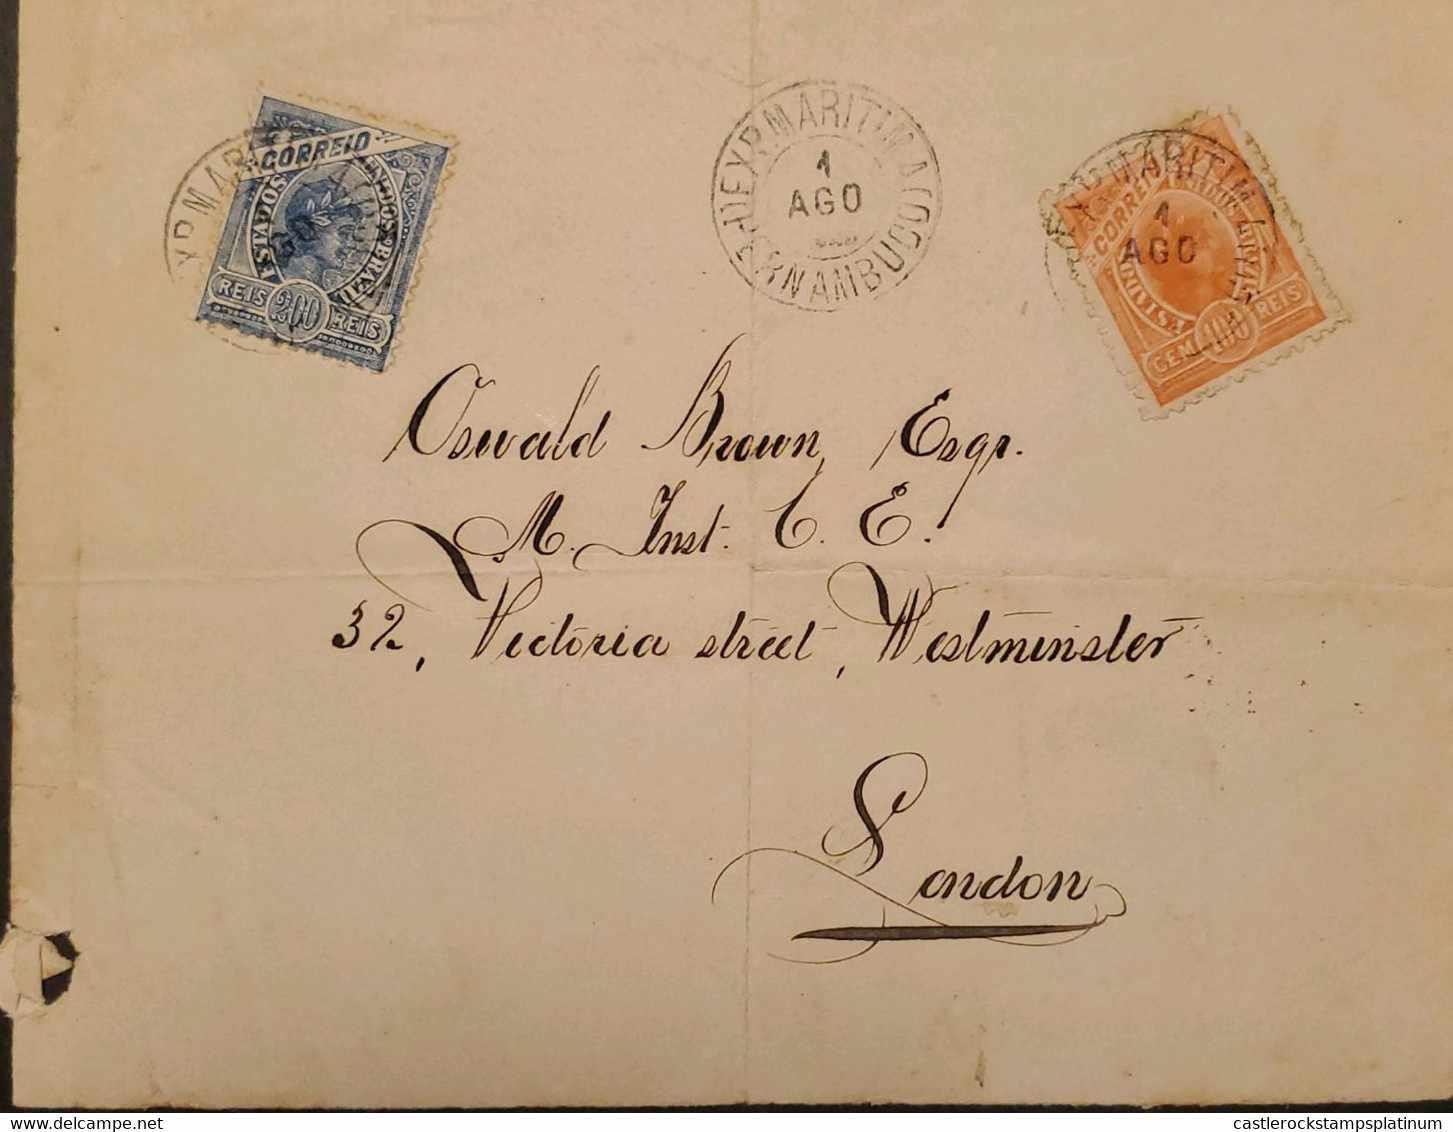 CORREIO
ESTADOS UNIDOS DO BRAZIL
REIS 200 REIS
EXP. MARITIMA (PERNAMBUCO)
1
AGO
CORREIO
ESTADOS UNIDOS
CEM 100 REIS
1
AGO
Oswald Brown, Esqr.
M. Inst. C. E.
32, Victoria street, Westminster
London
castlerockstampsplatinum